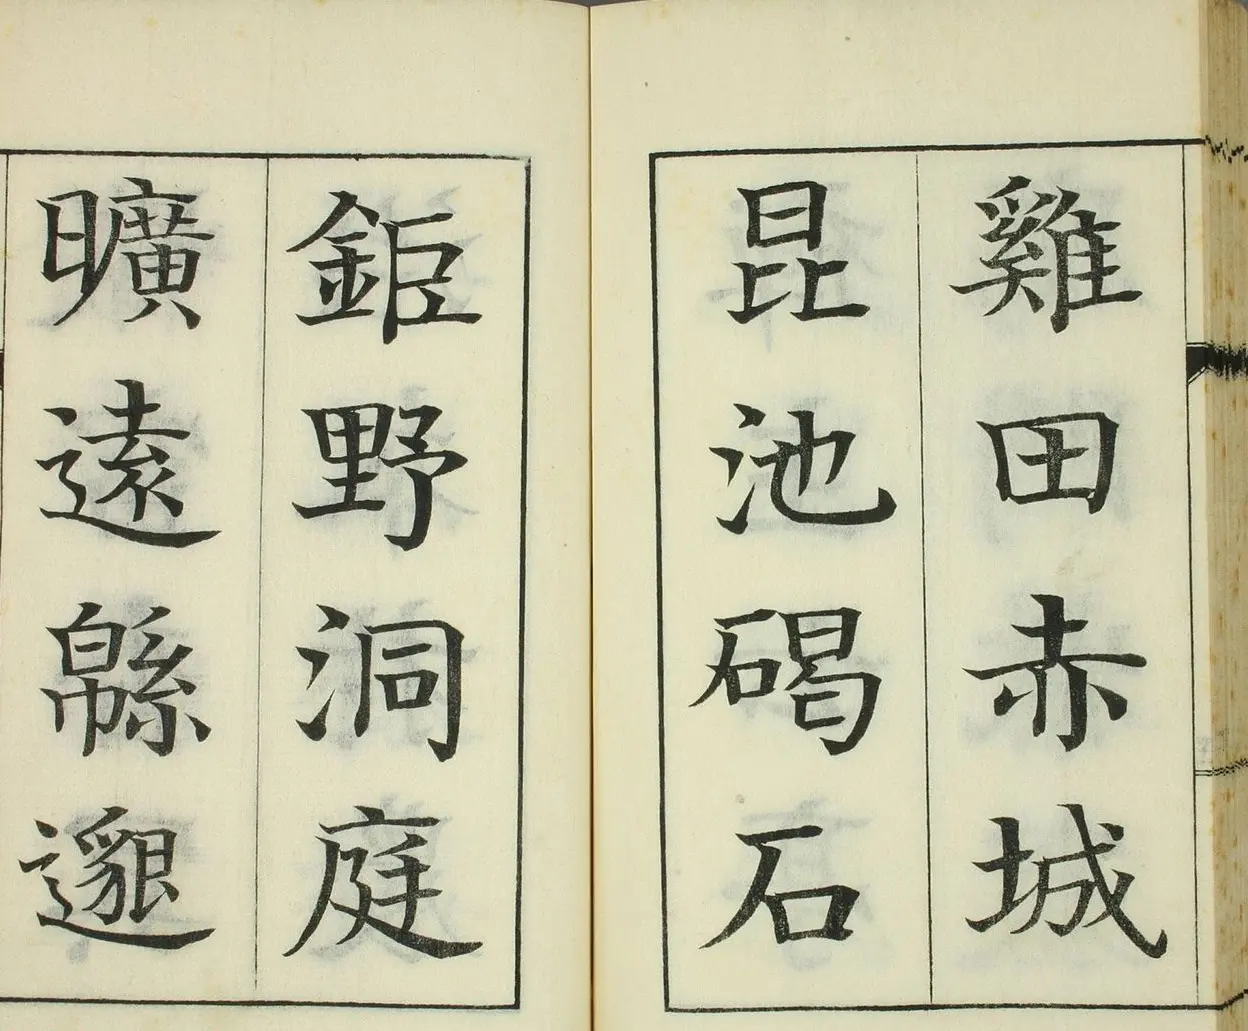 雞田赤城
昆池碣石
鉅野洞庭
曠遠緜邈